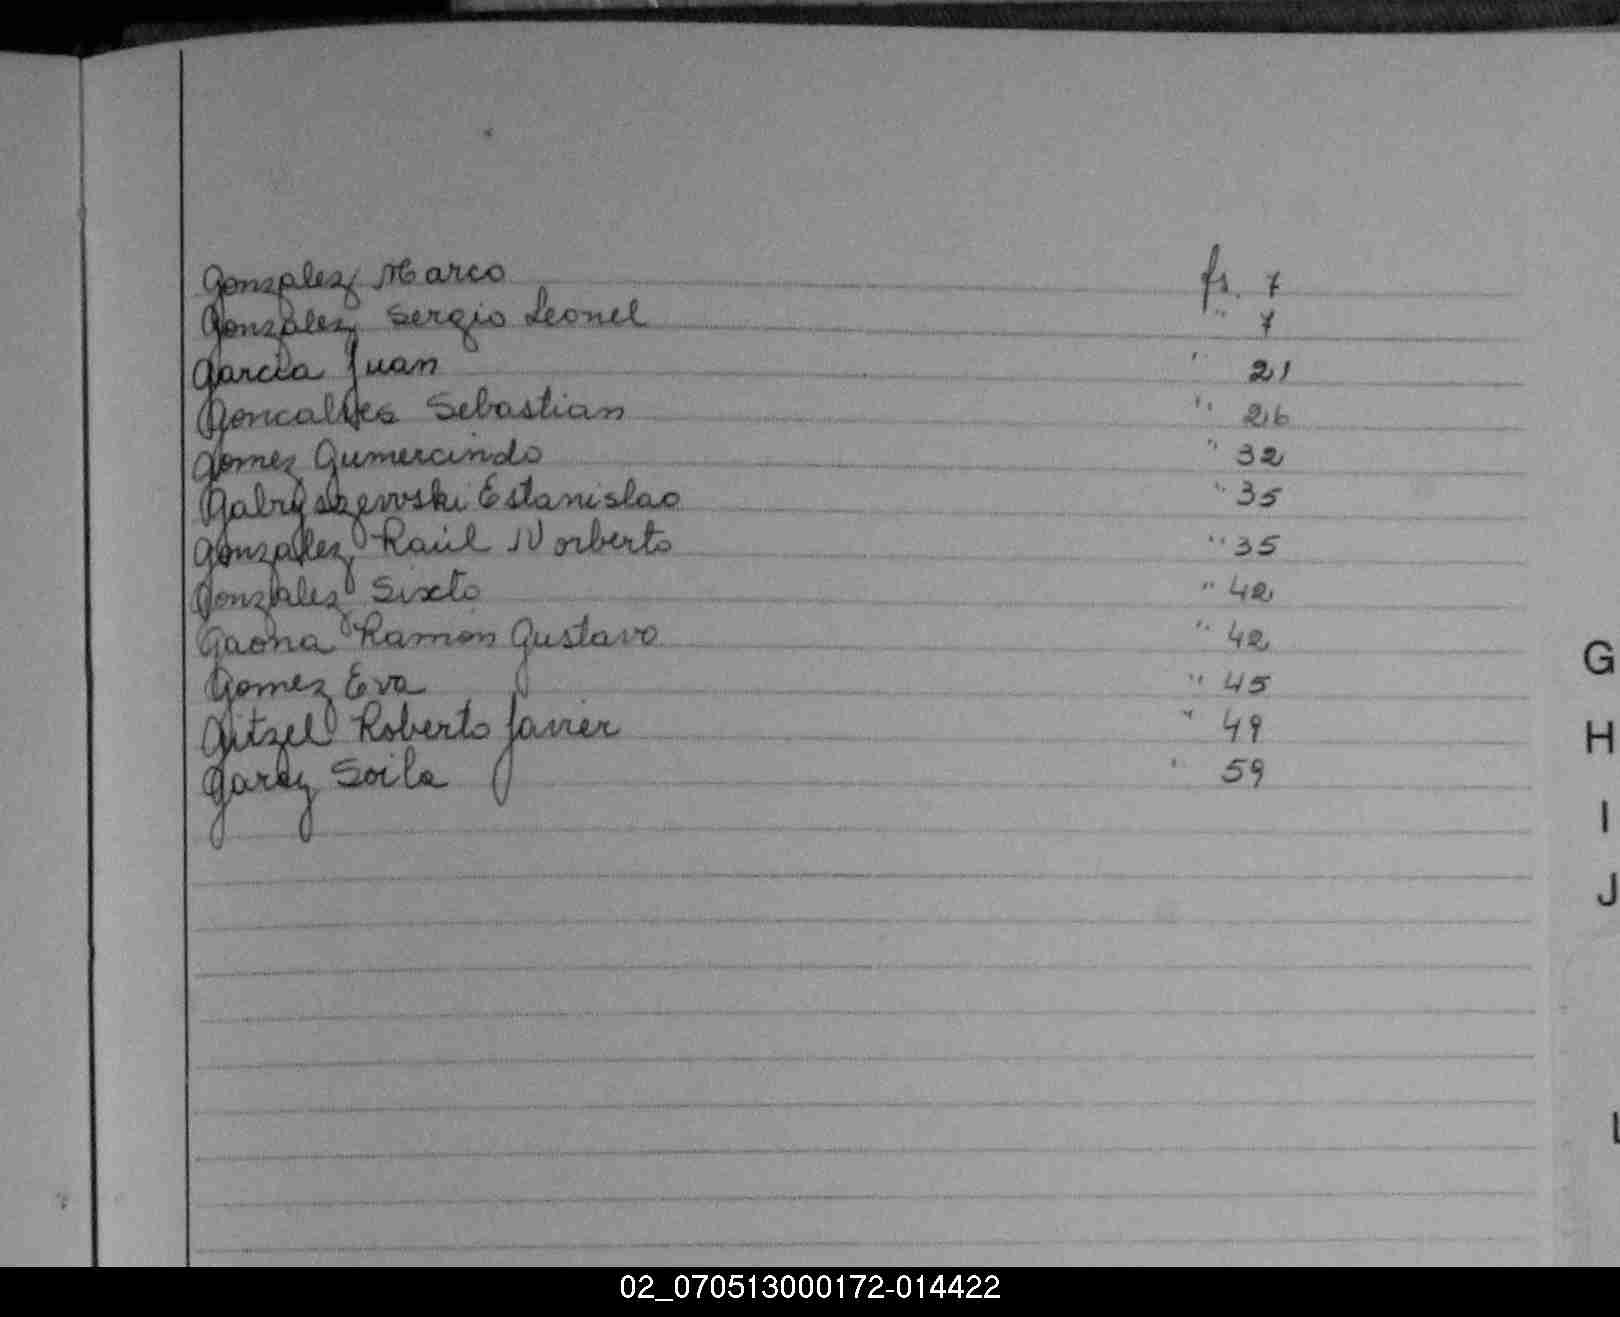 Gonzalez Marco fs. 7
Gonzalez Sergio Leonel " 7
Garcia Juan " 21
Goncalves Sebastian " 26
Gomez Gumercindo " 32
Gabryszewski Estanislao " 35
Gonzalez Raúl Norberto " 35
Gonzalez Sixto " 42
Gaona Ramón Gustavo " 42
Gomez Eva " 45
Gitzel Roberto Javier " 49
Garay Soila " 59
G
H
I
J
L
02_070513000172-014422